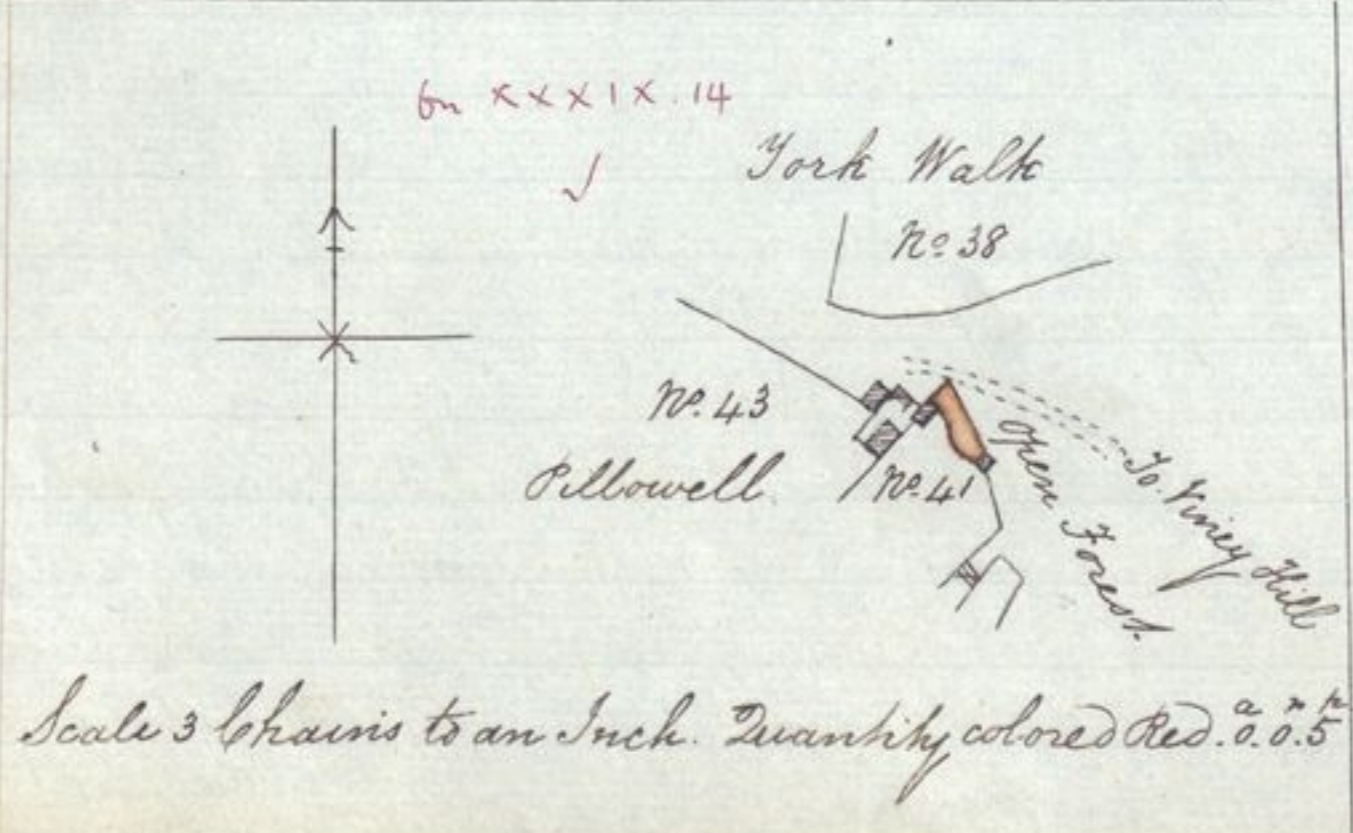 on XXXIX.14
York Walk
No. 38
No. 43
Pillowell
No. 41
Open Forest.
To Viney Hill
Scale 3 Chains to an Inch. Quantity colored Red. a r p 0. 0. 5